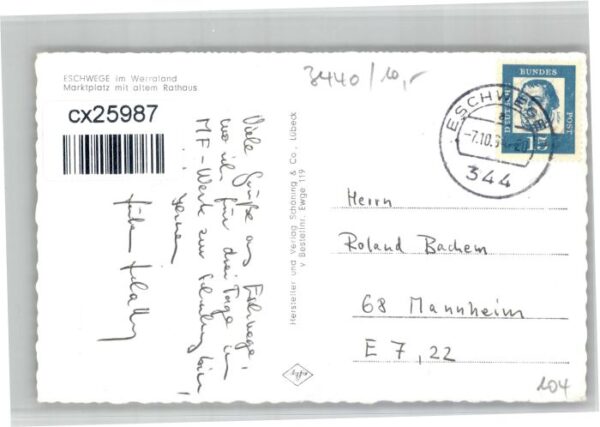 ESCHWEGE im Werraland
Marktplatz mit altem Rathaus
cx25987
3440/10,-
Viele Grüße aus Eschwege,
wo ich für drei Tage im
MF-Werk zur Schulung bin,
Hersteller und Verlag Schöning & Co., Lübeck
Bestellnr. Ewge 119
ESCHWEGE
-7.10.
344
DEUTSCHE
BUNDES
POST
15
Herrn
Roland Bachem
68 Mannheim
E 7, 22
104